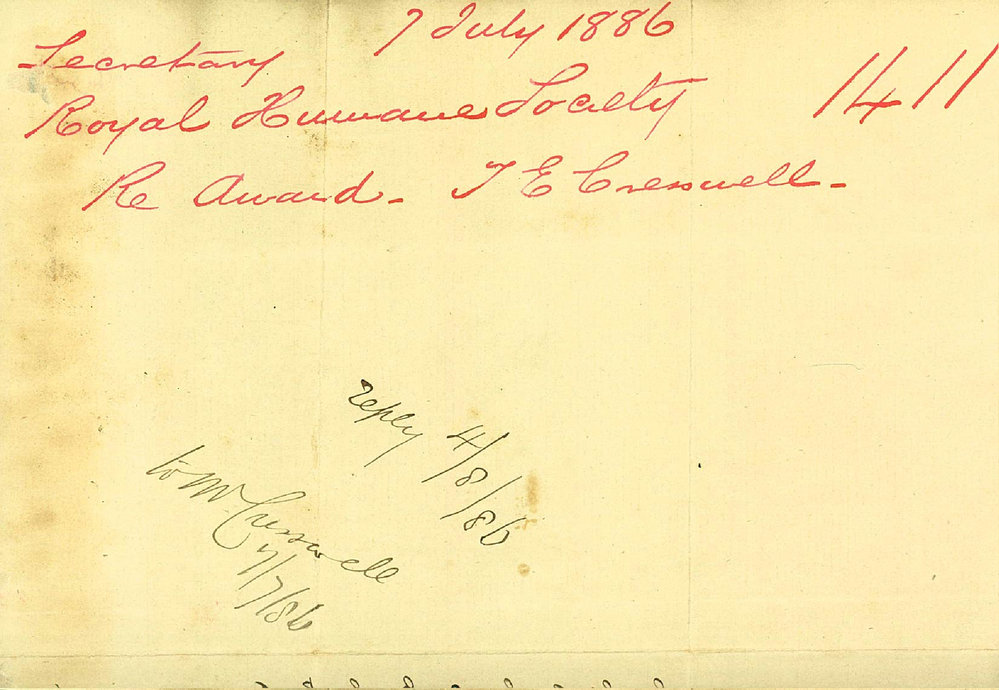 7 July 1886
Secretary
Royal Humane Society 1411
Re Award - T E Cresswell -
reply 4/8/86
to Mr Cresswell
7/7/86